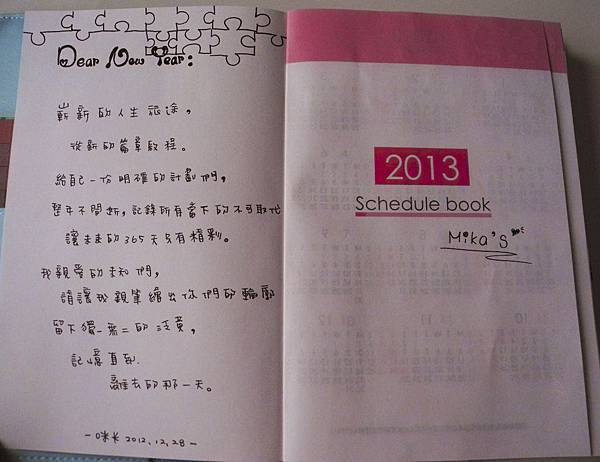 Dear New Year:
嶄新的人生旅途，
從新的篇章啟程。
給自己一份明確的計劃們，
整年不間斷，記錄所有當下的不可取代
讓未來的365天只有精彩。
我親愛的未知們，
請讓我親筆繪出你們的輪廓
留下獨一無二的泛黃，
記憶直到
離去的那一天。
－咪米 2012.12.28－
2013
Schedule book
Mika's